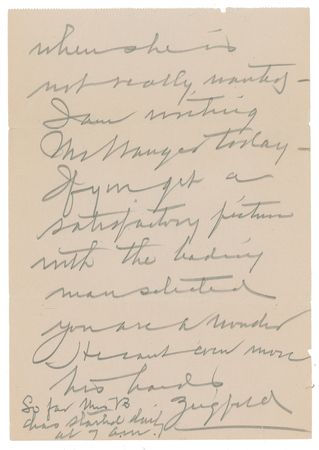 when she is
not really wanted –
I am writing
Mr Wanger today –
If you get a
satisfactory picture
with the leading
man selected
you are a wonder
He cant even move
his hands
Ziegfeld
So far Miss B
has started daily
at 7 a.m.!